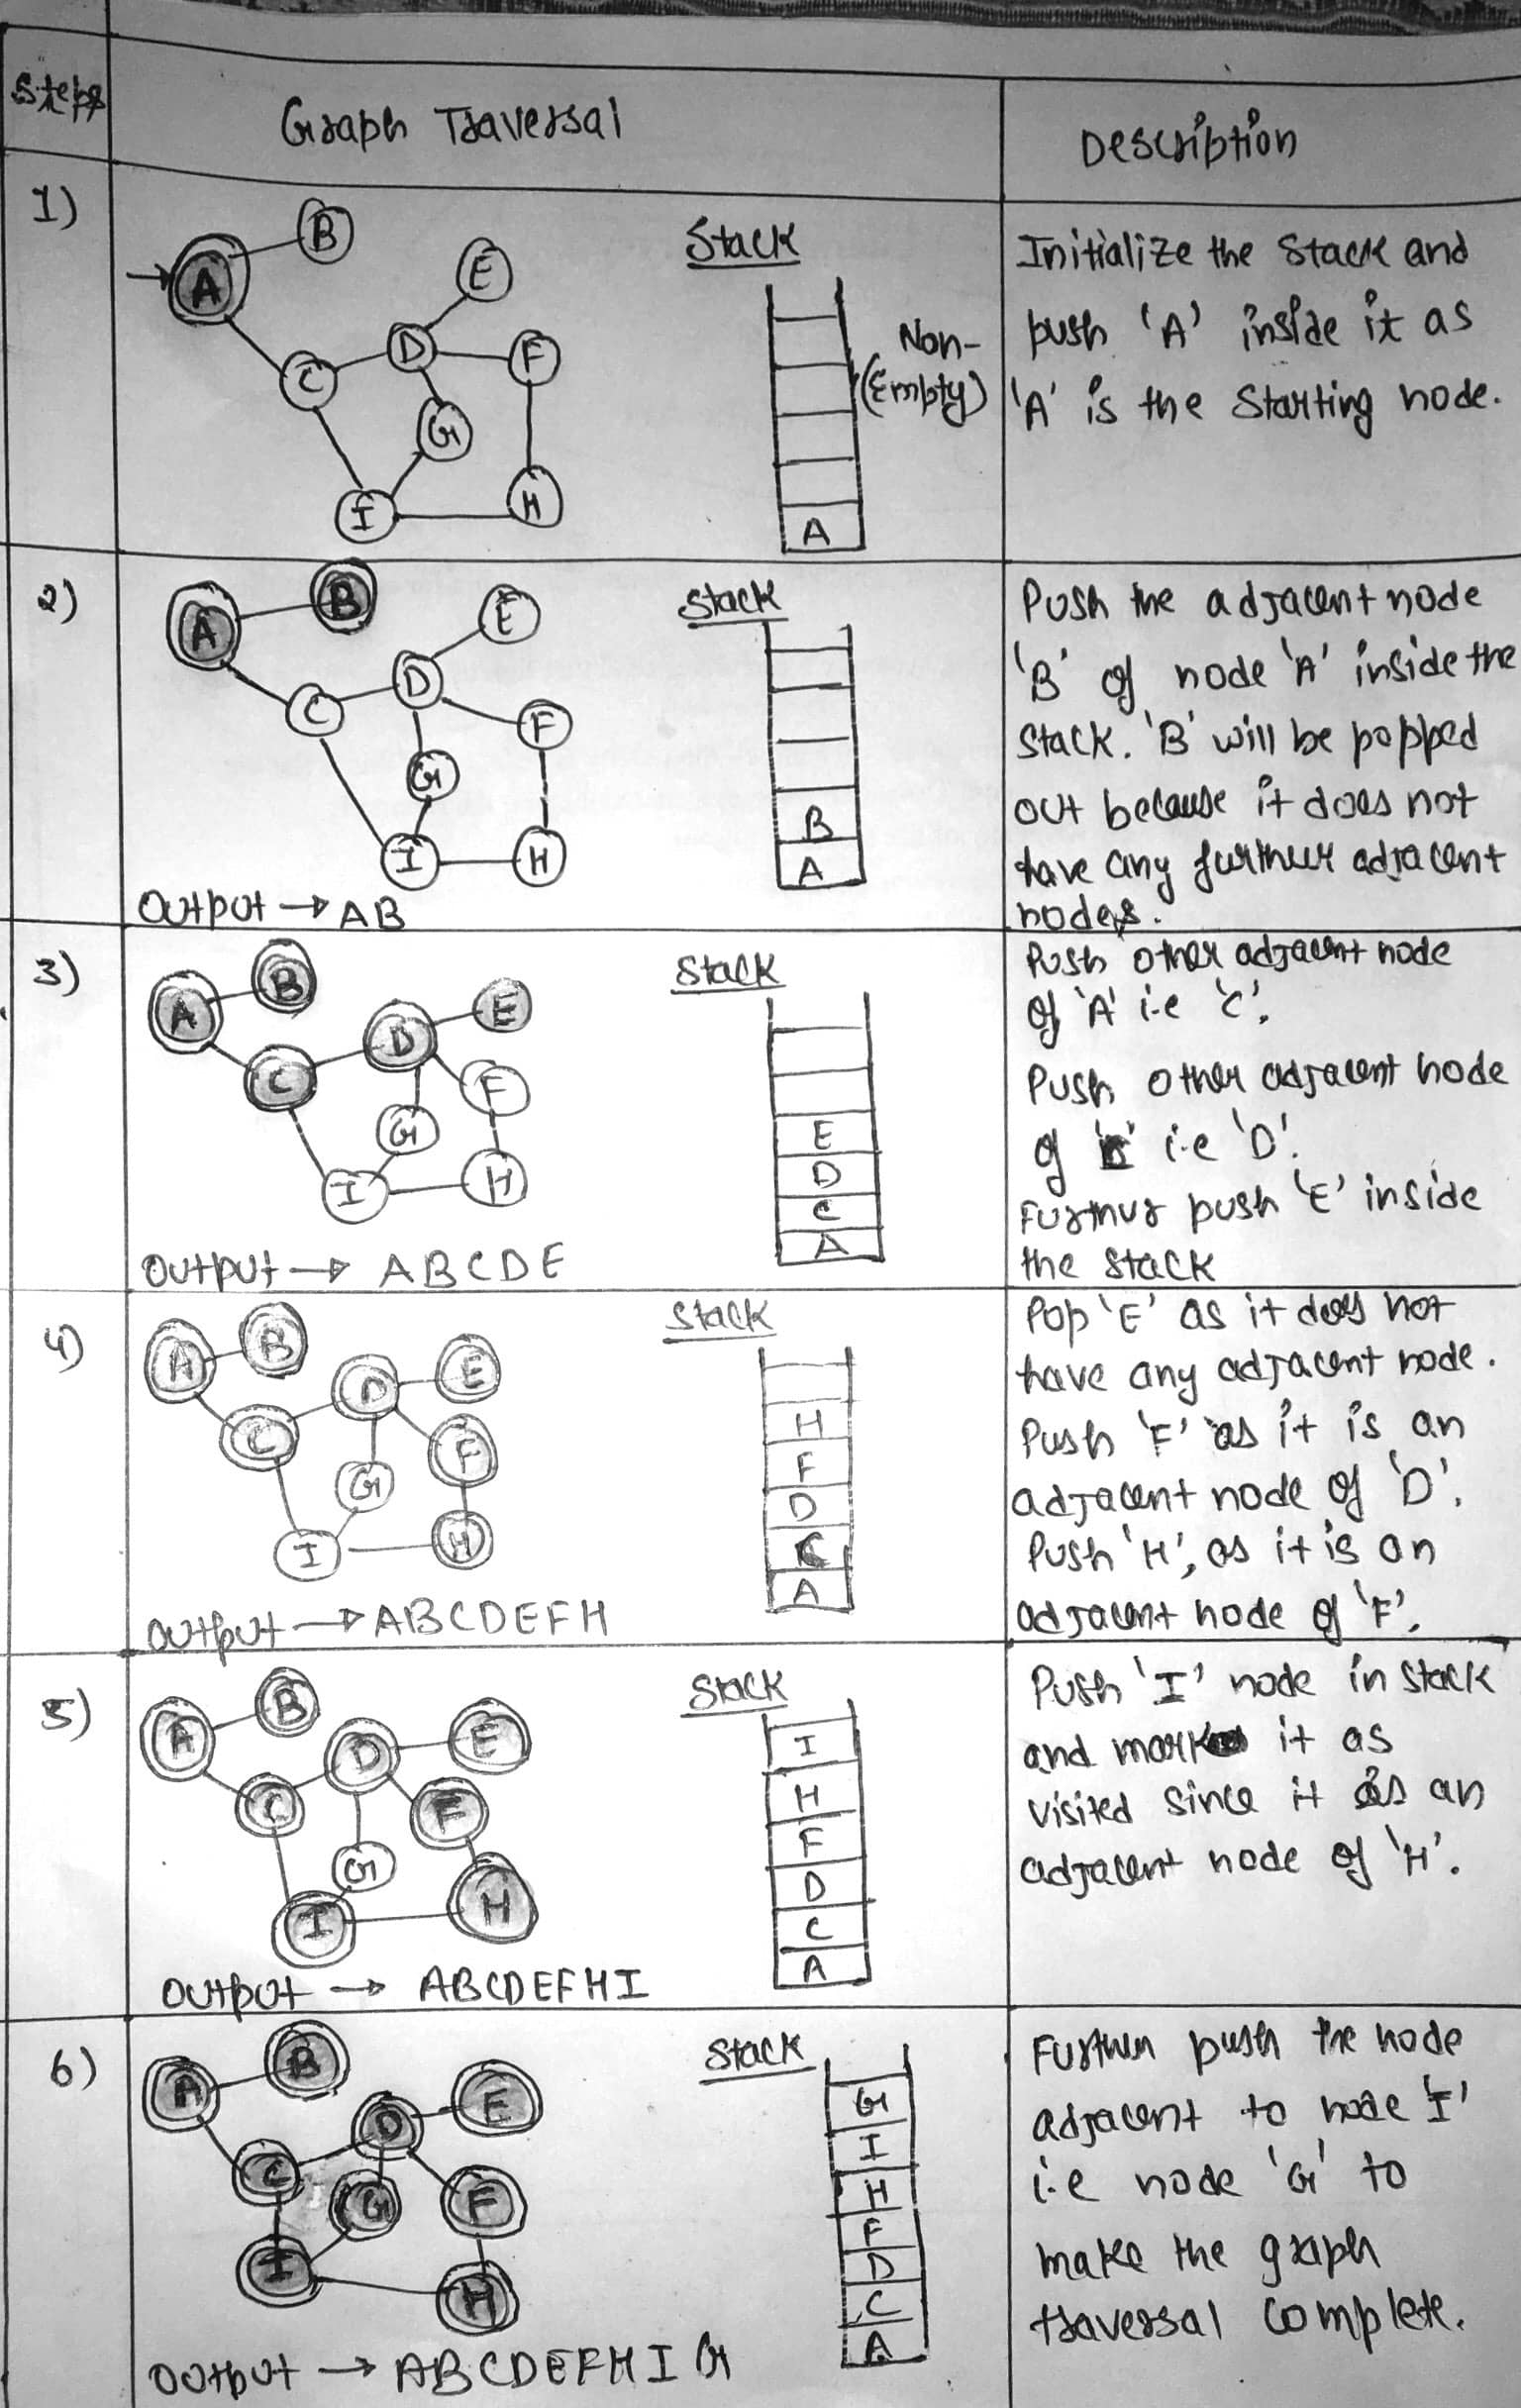 Steps
Graph Traversal
Description
1)
A
B
E
D
F
C
G
I
H
Stack
Non-
(Empty)
A
Initialize the Stack and
push 'A' inside it as
'A' is the Starting node.
2)
A
B
E
D
C
F
G
I
H
Output → AB
Stack
B
A
Push the adjacent node
'B' of node 'A' inside the
Stack. 'B' will be popped
out because it does not
have any further adjacent
nodes.
3)
B
A
E
D
C
F
G
I
H
Output → ABCDE
Stack
E
D
C
A
Push other adjacent node
of 'A' i.e 'C'.
Push other adjacent node
of i.e 'D'.
Further push 'E' inside
the stack
4)
B
A
E
D
C
F
G
I
H
Output → ABCDEFH
Stack
H
F
D
C
A
Pop 'E' as it does not
have any adjacent node.
Push 'F' as it is an
adjacent node of 'D'.
Push 'H', as it is an
adjacent node of 'F'.
5)
B
A
E
D
C
F
G
I
H
Output → ABCDEFHI
Stack
I
H
F
D
C
A
Push 'I' node in Stack
and mark it as
visited since it is an
adjacent node of 'H'.
6)
B
A
E
D
C
G
F
I
H
Output → ABCDEFHIG
Stack
G
I
H
F
D
C
A
Further push the node
adjacent to node 'I'
i.e node 'G' to
make the graph
traversal complete.